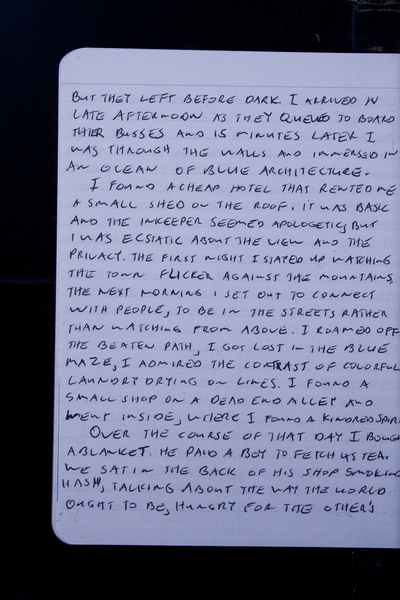 BUT THEY LEFT BEFORE DARK. I ARRIVED IN
LATE AFTERNOON AS THEY QUEUED TO BOARD
THIER BUSSES AND 15 MINUTES LATER I
WAS THROUGH THE WALLS AND IMMERSED IN
AN OCEAN OF BLUE ARCHITECTURE.
I FOUND A CHEAP HOTEL THAT RENTED ME
A SMALL SHED ON THE ROOF. IT WAS BASIC
AND THE INKEEPER SEEMED APOLOGETIC, BUT
I WAS ECSTATIC ABOUT THE VIEW AND THE
PRIVACY. THE FIRST NIGHT I STAYED UP WATCHING
THE TOWN FLICKER AGAINST THE MOUNTAINS.
THE NEXT MORNING I SET OUT TO CONNECT
WITH PEOPLE, TO BE IN THE STREETS RATHER
THAN WATCHING FROM ABOVE. I ROAMED OFF
THE BEATEN PATH, I GOT LOST IN THE BLUE
MAZE, I ADMIRED THE CONTRAST OF COLORFUL
LAUNDRY DRYING ON LINES. I FOUND A
SMALL SHOP ON A DEAD END ALLEY AND
WENT INSIDE, WHERE I FOUND A KINDRED SPIRI
OVER THE COURSE OF THAT DAY I BOUGH
A BLANKET. HE PAID A BOY TO FETCH US TEA.
WE SAT IN THE BACK OF HIS SHOP SMOKING
HASH, TALKING ABOUT THE WAY THE WORLD
OUGHT TO BE, HUNGRY FOR THE OTHER'S